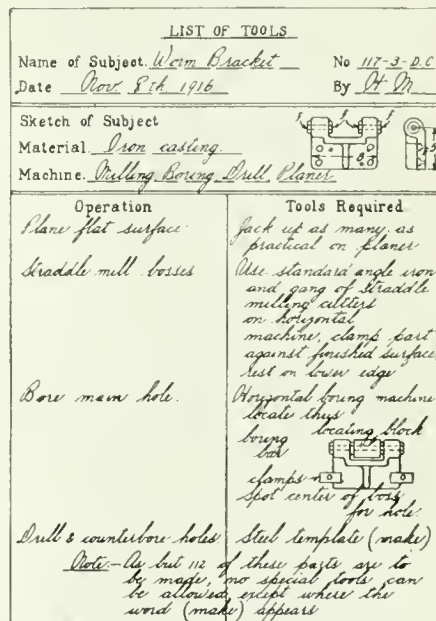 LIST OF TOOLS
Name of Subject. Worm Bracket No 117-3-D.C
Date Nov. 8th 1916 By H M
Sketch of Subject
Material. Iron casting.
Machine. Milling, Boring, Drill Planer
Operation Tools Required
Plane flat surface. Jack up as many as
practical on planer
Straddle mill bosses Use standard angle iron
and gang of straddle
milling cutters
on horizontal
machine, clamp part
against finished surface,
rest on lower edge
Bore main hole. Horizontal boring machine
locate thus
boring locating block
bar
clamps
spot center of boss
for hole.
Drill & counterbore holes Steel template (make)
Note:- As but 112 of these parts are to
be made, no special tools can
be allowed except where the
word (make) appears